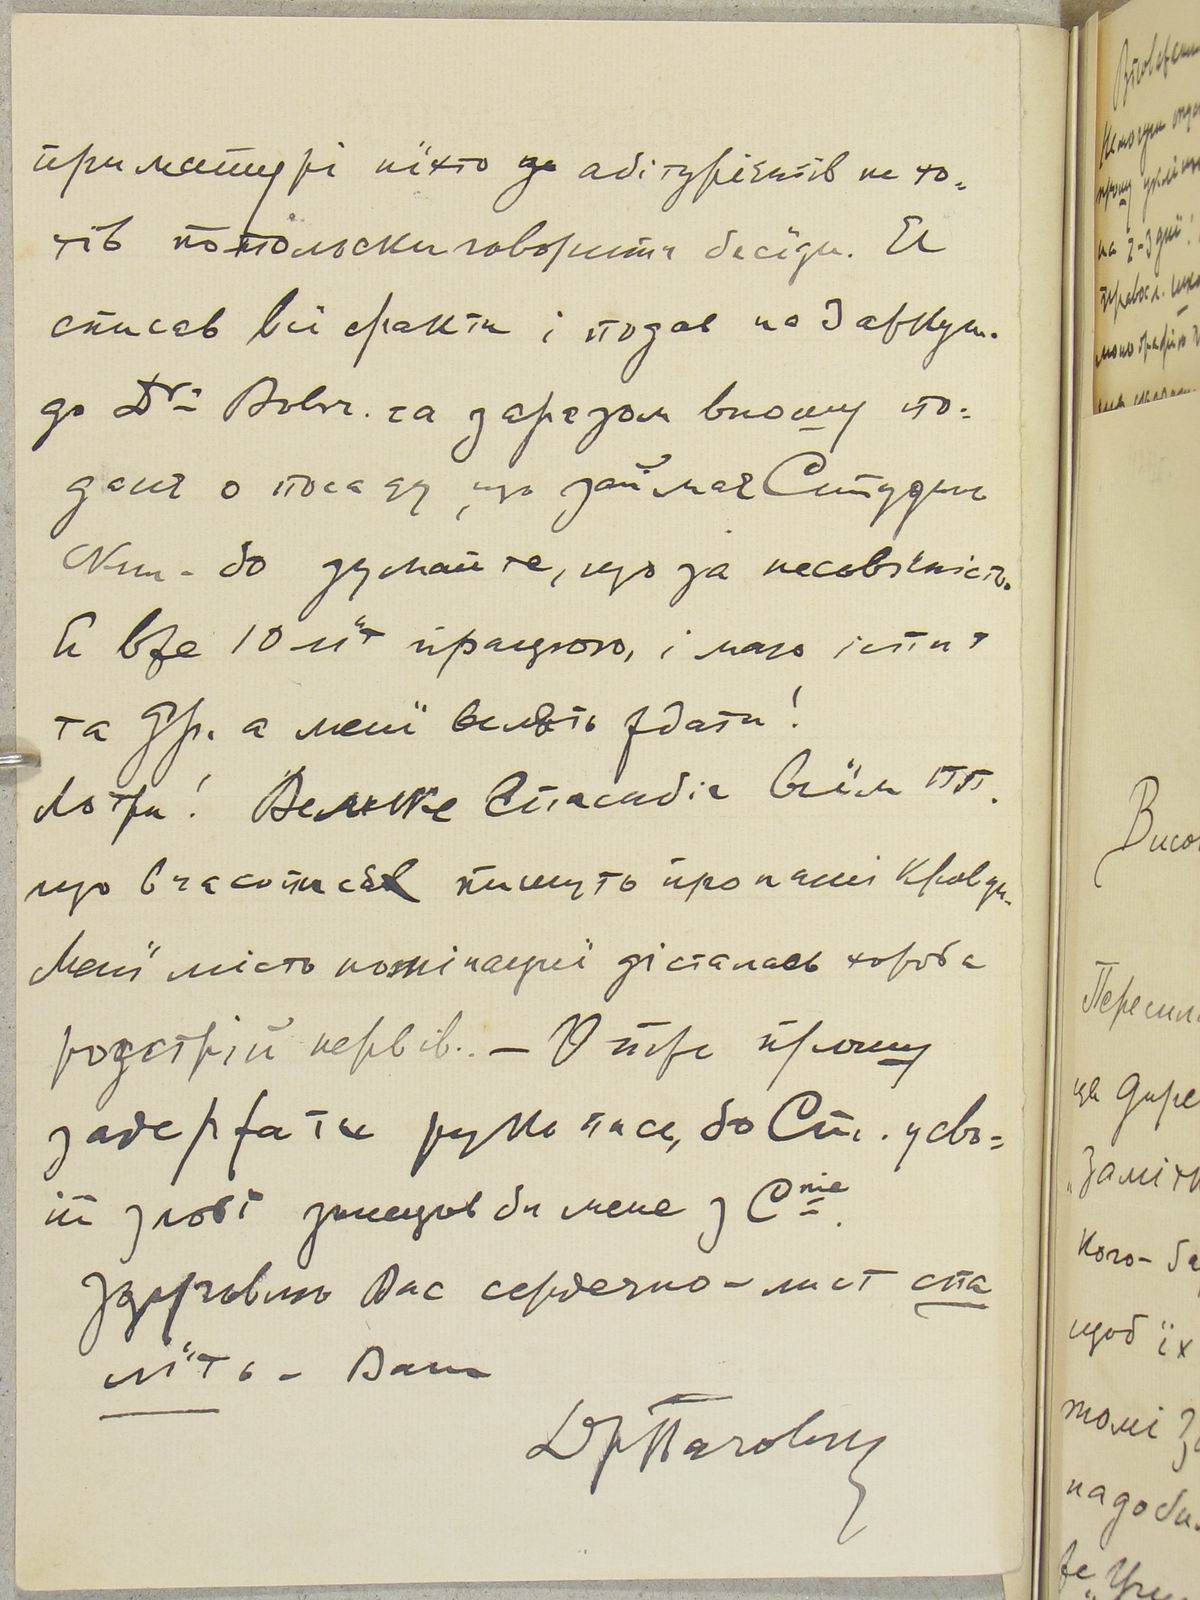 при матурі ніхто зо абітурієнтів не хо=
тів попольски говорити бесіди. Я
списав всі факти і подав на 3 аркуш.
до Dra Бобр. та заразом вношу по=
данє о посаду, що займає Студин
бо думайте, що за несовісність.
Я вже 10 літ працюю, і маю іспит
та Др. а мені велять ждати!
Лотри! Велике Спасибіг всім ПП.
що в часописах пишуть про нашi кривди.
Мені місто номінациї дісталась хороба
розстрій нервів.. — Отже прошу
задержати рукописе, бо Ст. у сво=
їй злобі знищив би мене з
Здоровлю Вас сердечно – лист спа
літь – Ваш
Др Пачовський
Висо
Пересила
ця Дире
"Замітк
кого- ба
щоб їх
томі
надоби
на 2-3 дні!